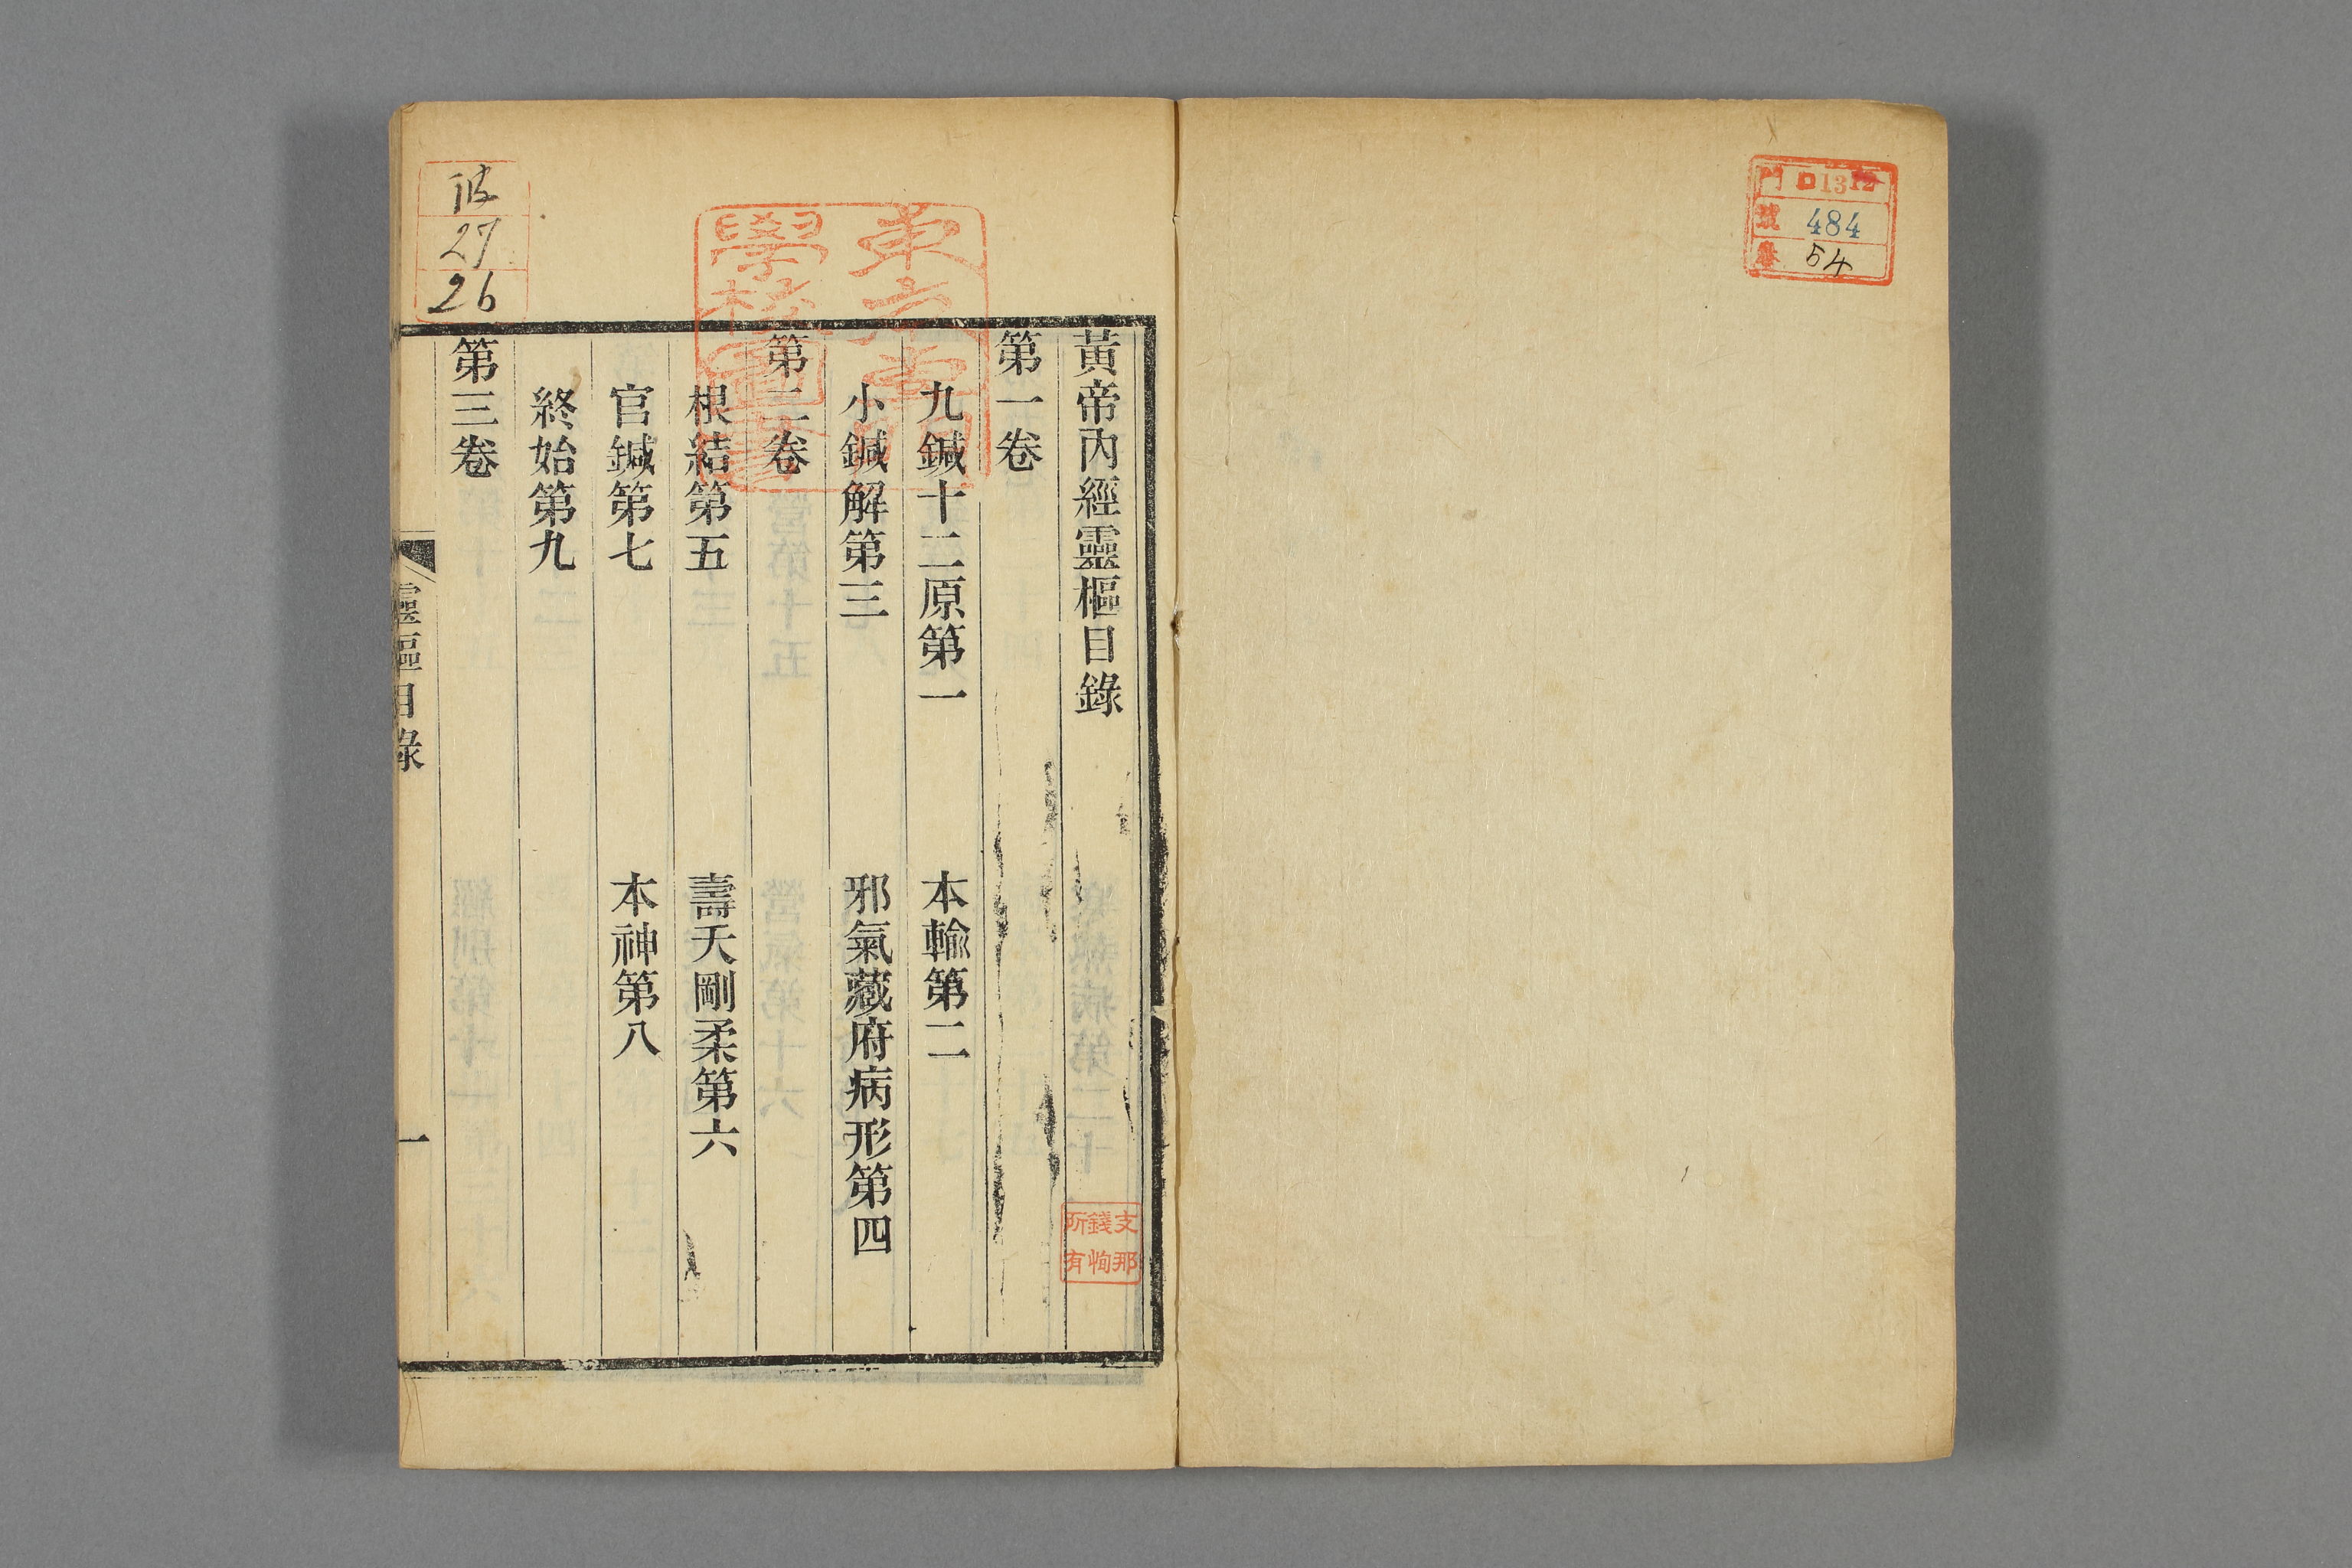 門 D1312
號 484
卷 54
黃帝內經靈樞目錄
第一卷
九鍼十二原第一 本輸第二
小鍼解第三 邪氣藏府病形第四
第二卷
根結第五 壽夭剛柔第六
官鍼第七 本神第八
終始第九
第三卷
靈樞目錄 一
東京專門
學校圖書
支那
錢恂
所有
27
26